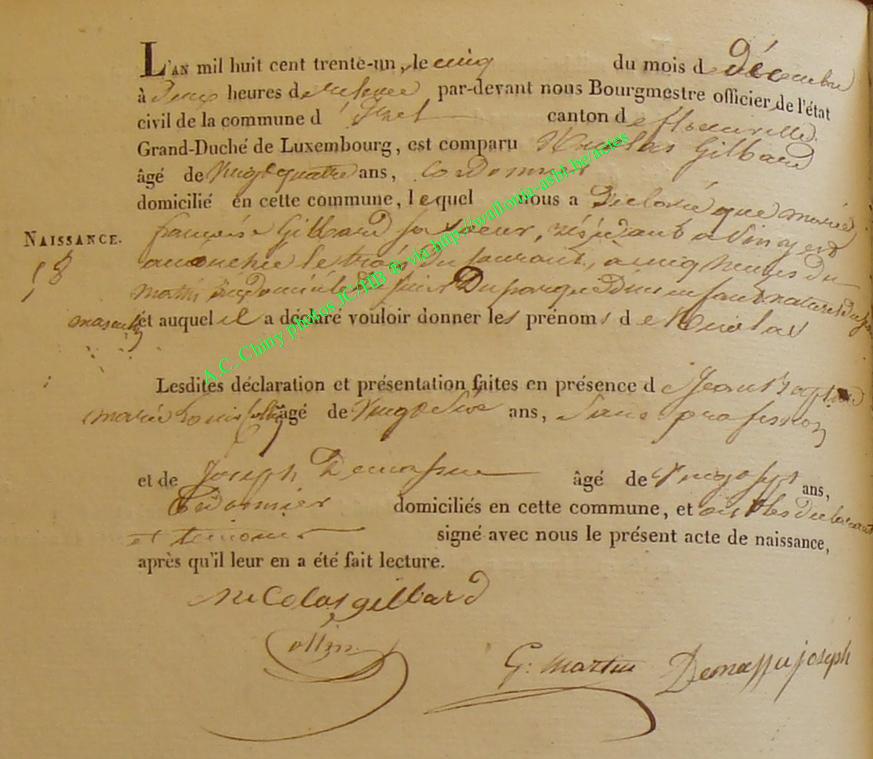 L'AN mil huit cent trente-un, le cinq du mois de Décembre
à Deux heures de relevée par-devant nous Bourgmestre officier de l'état
civil de la commune d' Izel canton de florenville
Grand-Duché de Luxembourg, est comparu Nicolas Gilbard
âgé de Vingt quatre ans, Cordonnier
domicilié en cette commune, lequel nous a Déclaré que marie
NAISSANCE.
françoise Gilbard sa soeur, résidant a
accouchée le trois du courant, a cinq heures du
58
matin domicile de Duparque d'un enfant naturel du sexe
masculin et auquel il a déclaré vouloir donner les prénoms de Nicolas
Lesdites déclaration et présentation faites en présence de Jean Baptiste
marie Louis Collin âgé de Vingt Six ans, Sans profession
et de Joseph Demassue âgé de Vingt sept ans,
Cordonnier domiciliés en cette commune, et ont les déclarant
et témoins signé avec nous le présent acte de naissance,
après qu'il leur en a été fait lecture.
Nicolas gilbard
Collin
G. Martin Demassu joseph
A.C. Chiny photos JC/HB & via http://wallonia-asbl.be/actes